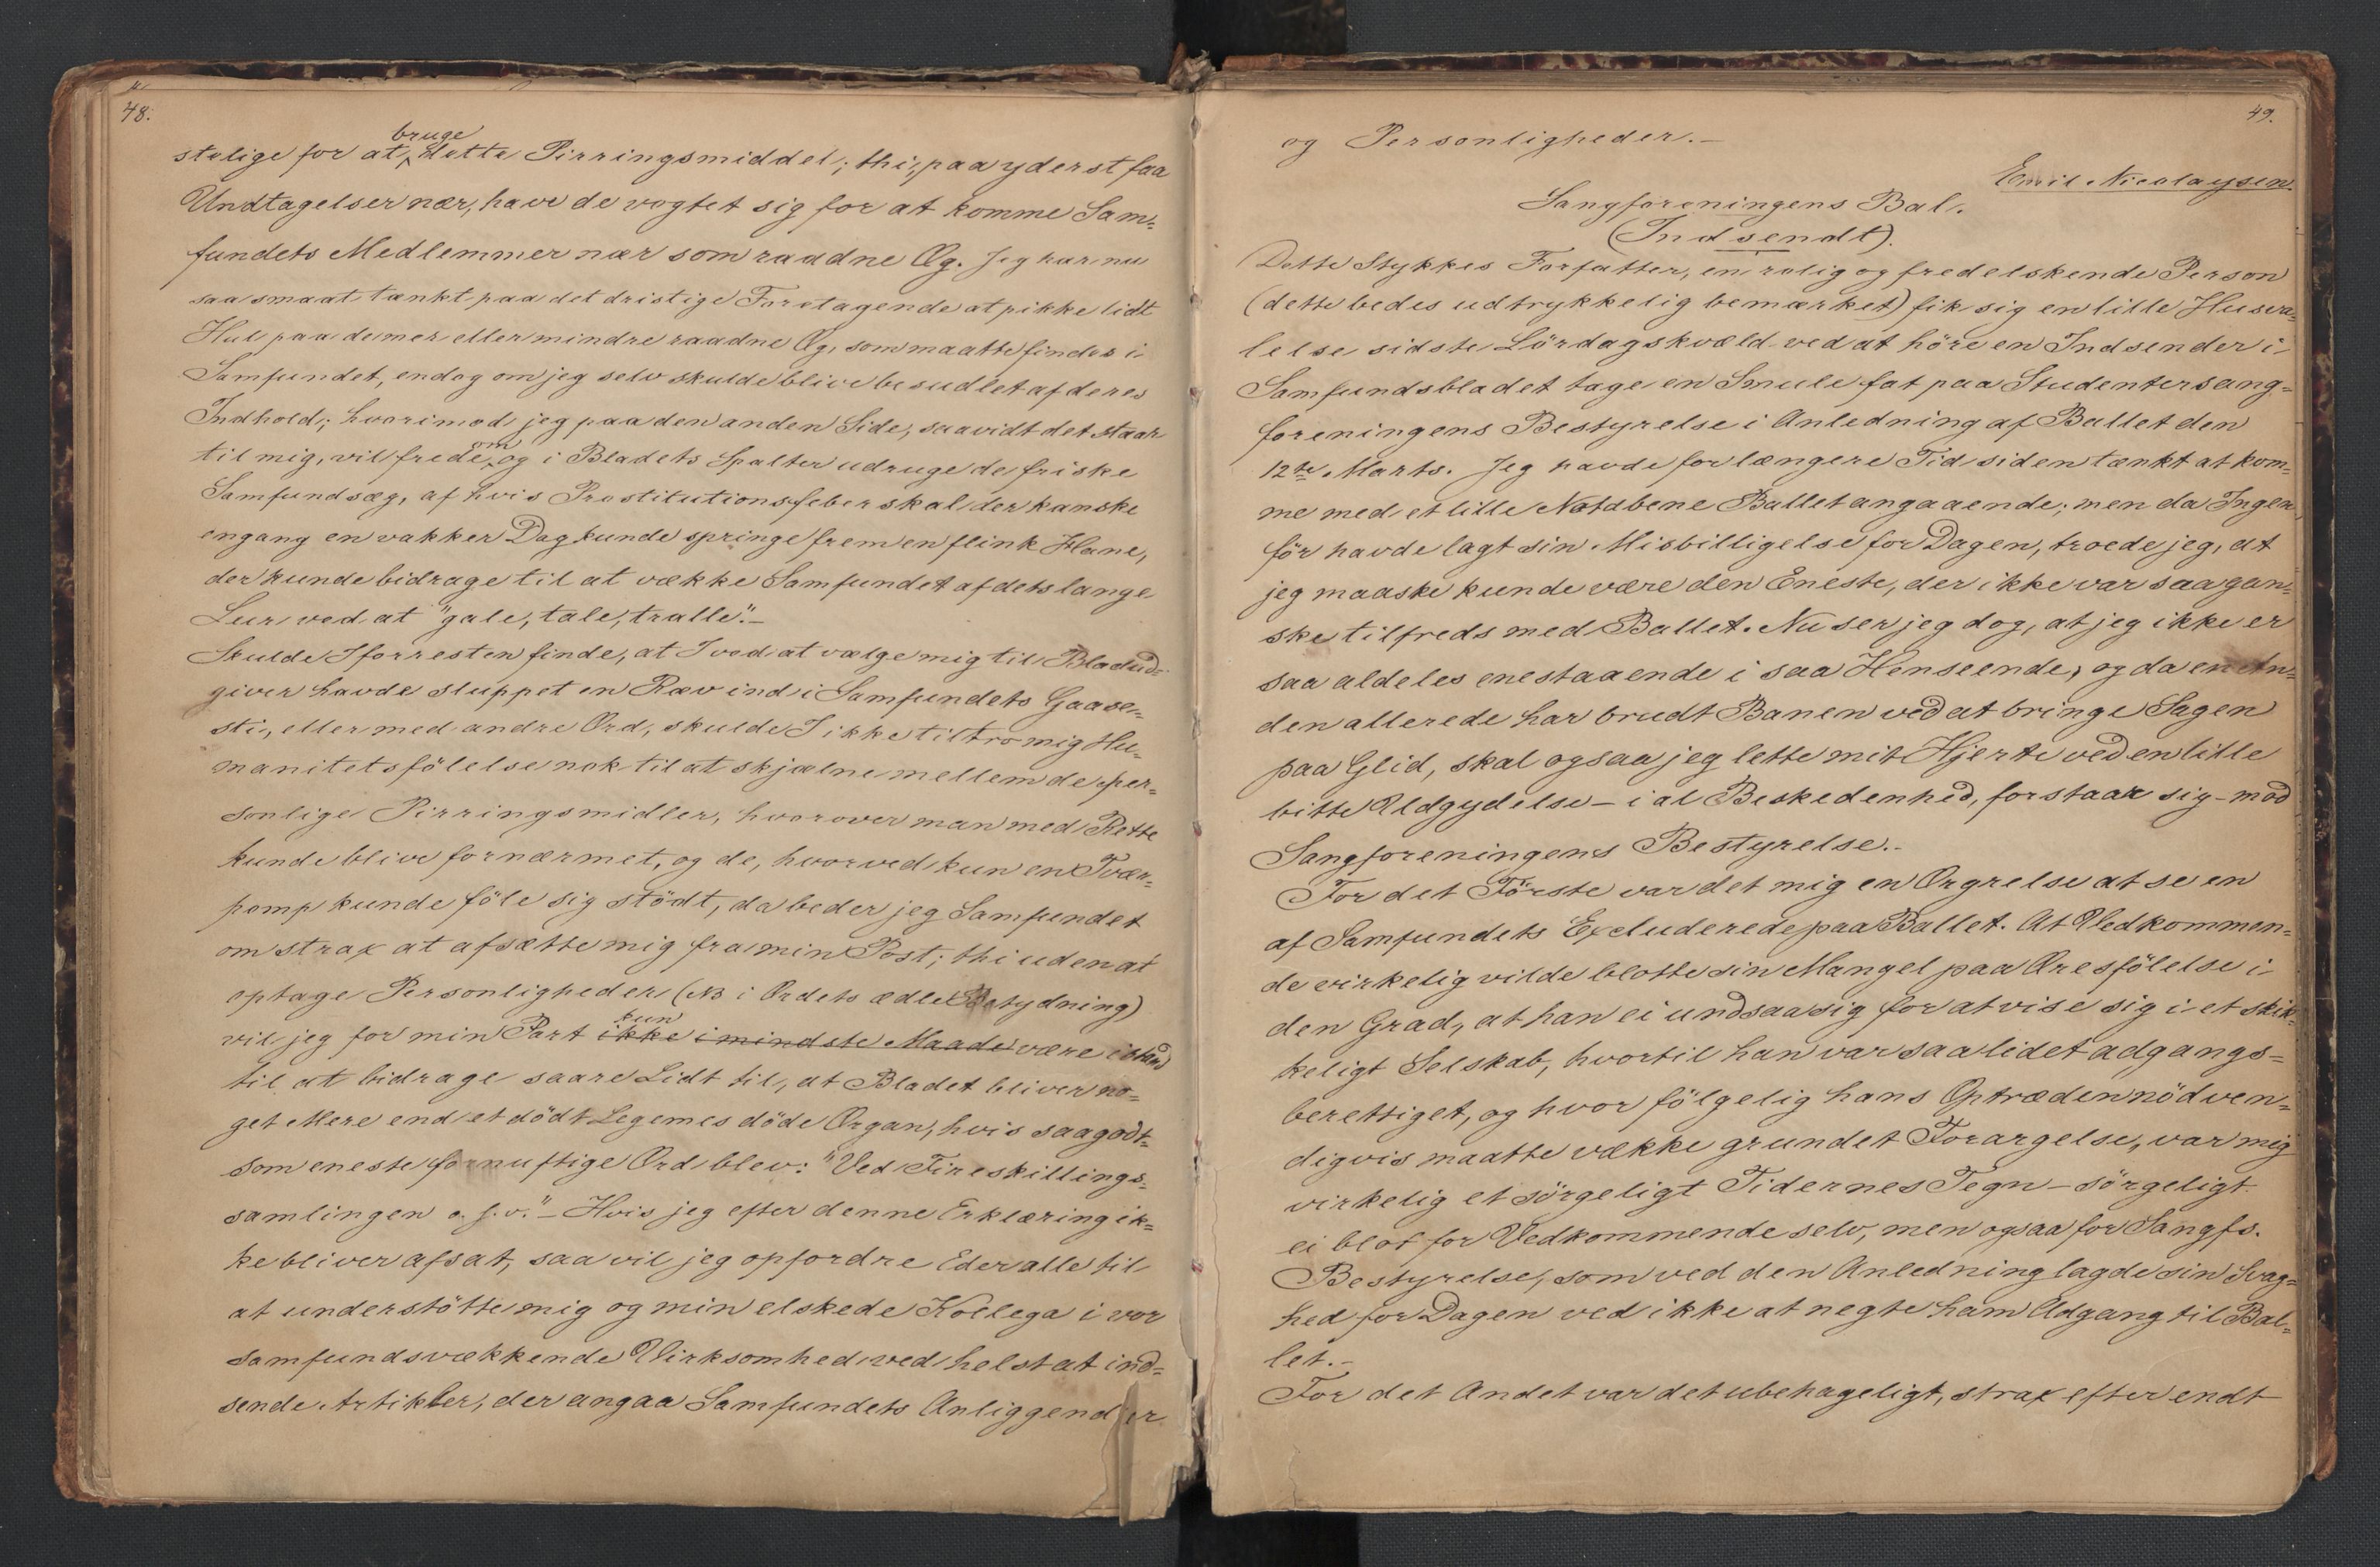 48.
stelige for at bruge dette Pirringsmiddel; thi, paa yderst faa
Undtagelser nær, have de vogtet sig for at komme Sam=
fundets Medlemmer nær som raadne Æg. Jeg har nu
saa smaat tænkt paa det dristige Foretagende at pikke lidt
Hul paa de mer eller mindre raadne Æg, som maatte findes i
Samfundet, endog om jeg selv skulde blive besudlet af deres
Indhold; hvorimod jeg paa den anden Side, saavidt det staar
til mig, vil frede om og i Bladets Spalter udruge de friske
Samfundsæg, af hvis Prostitutionsfeber skal der kanske
engang en vakker Dag kunde springe frem en flink Hane,
der kunde bidrage til at vække Samfundet af dets lange
Lur ved at "gale, tale, tralle".—
Skulde I forresten finde, at I ved at vælge mig til Bladud=
giver havde sluppet en Ræv ind i Samfundets Gaase=
sti, eller med andre Ord, skulde I ikke tiltro mig Hu=
manitetsfölelse nok til at skjælne mellem de per=
sonlige Pirringsmidler, hvorover man med Rette
kunde blive fornærmet, og de, hvorved kun en Tvær=
pomp kunde föle sig stödt, da beder jeg Samfundet
om strax at afsætte mig fra min Post; thi uden at
optage Personligheder (NB i Ordets ædle Betydning)
vil jeg for min Part ikke i mindste Maade kun være istand
til at bidrage saare Lidt til, at Bladet bliver no=
get Mere end et dödt Legemes döde Organ, hvis saagodt=
som eneste fornuftige Ord blev: "Ved Fireskillings=
samlingen o. s. v." — Hvis jeg efter denne Erklæring ik=
ke bliver afsat, saa vil jeg opfordre Eder alle til
at understötte mig og min elskede Kollega i vor
samfundsvækkende Virksomhed ved helst at ind=
sende Artikler, der angaa Samfundets Anliggender
49.
og Personligheder.—
Emil Nicolaysen.
Sangforeningens Bal.
(Indsendt).
Dette Stykkes Forfatter, en rolig og fredelskende Person
(dette bedes udtrykkelig bemærket) fik sig en lille Husva=
lelse sidste Lördagskvæld ved at höre en Indsender i
Samfundsbladet tage en Smule fat paa Studentersang=
foreningens Bestyrelse i Anledning af Ballet den
12te Marts. Jeg havde for længere Tid siden tænkt at kom=
me med et lille Notabene Ballet angaaende; men da Ingen
för havde lagt sin Misbilligelse for Dagen, troede jeg, at
jeg maaske kunde være den Eneste, der ikke var saa gan=
ske tilfreds med Ballet. Nu ser jeg dog, at jeg ikke er
saa aldeles enestaaende i saa Henseende, og da en An=
den allerede har brudt Banen ved at bringe Sagen
paa Glid, skal ogsaa jeg lette mit Hjerte ved en lille
bitte Udgydelse — i al Beskedenhed, forstaar sig — mod
Sangforeningens Bestyrelse.—
For det Förste var det mig en Ærgrelse at se en
af Samfundets Excluderede paa Ballet. At Vedkommen=
de virkelig vilde blotte sin Mangel paa Æresfölelse i
den Grad, at han ei undsaa sig for at vise sig i et skik=
keligt Selskab, hvortil han var saa lidet adgangs=
berettiget, og hvor fölgelig hans Optræden nödven=
digvis maatte vække grundet Forargelse, var mig
virkelig et sörgeligt Tidernes Tegn — sörgeligt
ei blot for Vedkommende selv, men ogsaa for Sangfs.
Bestyrelse, som ved den Anledning lagde sin Svag=
hed for Dagen ved ikke at negte ham Adgang til Bal=
let.—
For det Andet var det ubehageligt, strax efter endt